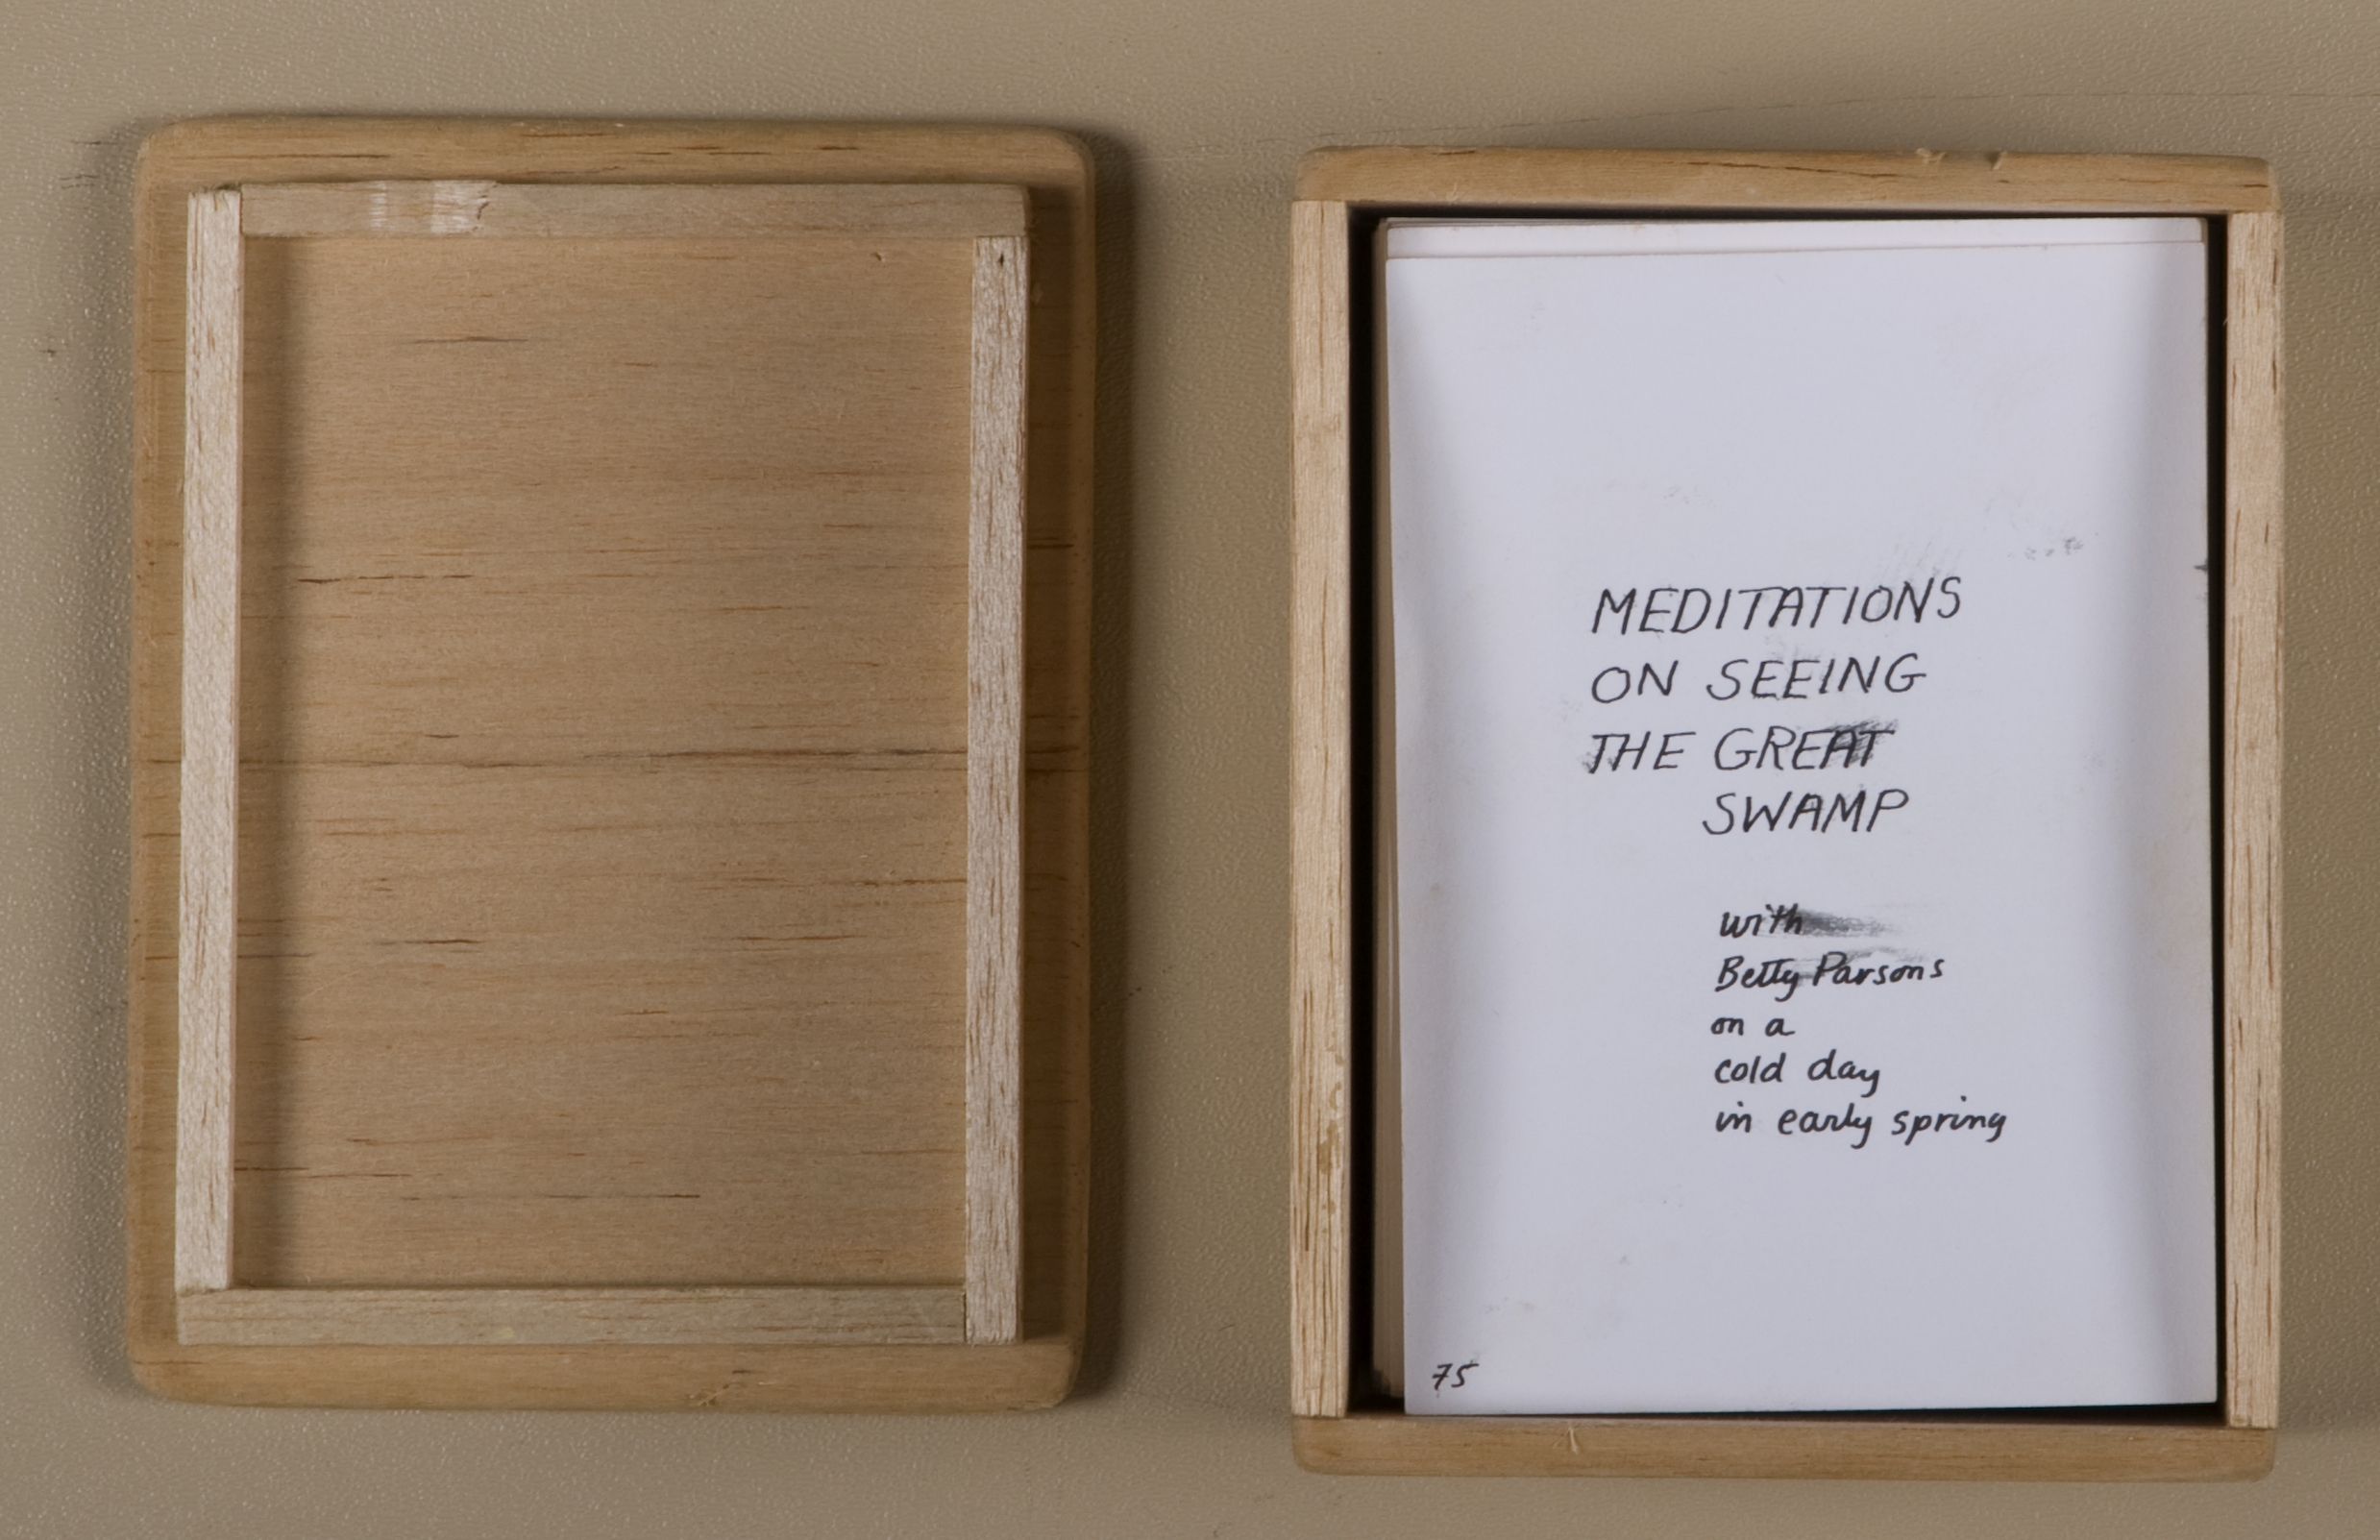 MEDITATIONS
ON SEEING
THE GREAT
SWAMP
with
Betty Parsons
on a
cold day
in early spring
75